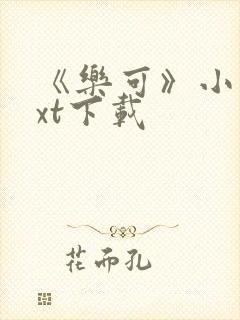 《樂可》小
xt下載
花而孔